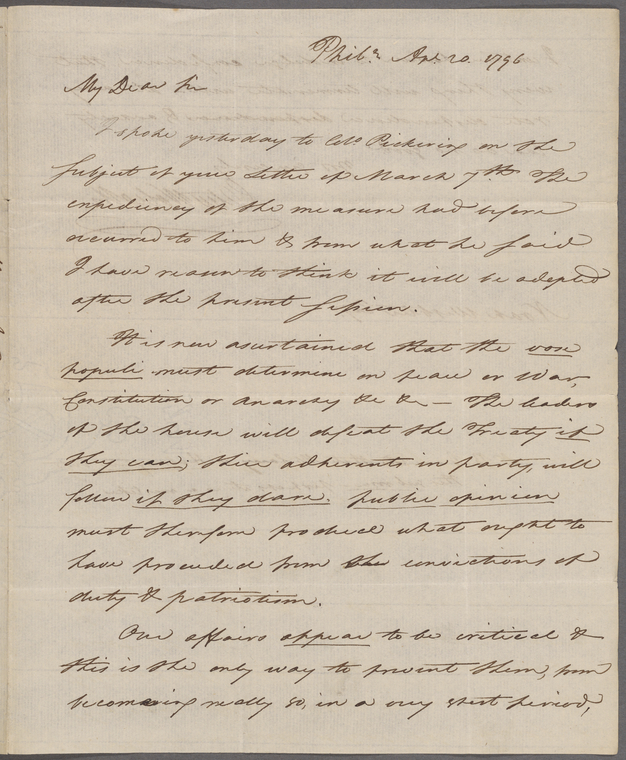 Phila. Apl. 20. 1796
My Dear Sir
I spoke yesterday to Colo Pickering on the
subject of your Letter of March 7th. The
expediency of the measure had before
occurred to him & from what he said
I have reason to think it will be adopted
after the present session.
It is now ascertained that the vox
populi must determine on peace or War,
Constitution or anarchy &c &c — The leaders
of the house will defeat the Treaty if
they can; their adherents in party, will
follow if they dare. public opinion
must therefore produce what ought to
have proceeded from the convictions of
duty & patriotism.
Our affairs appear to be critical &
this is the only way to prevent them, from
becoming really so, in a very short period,